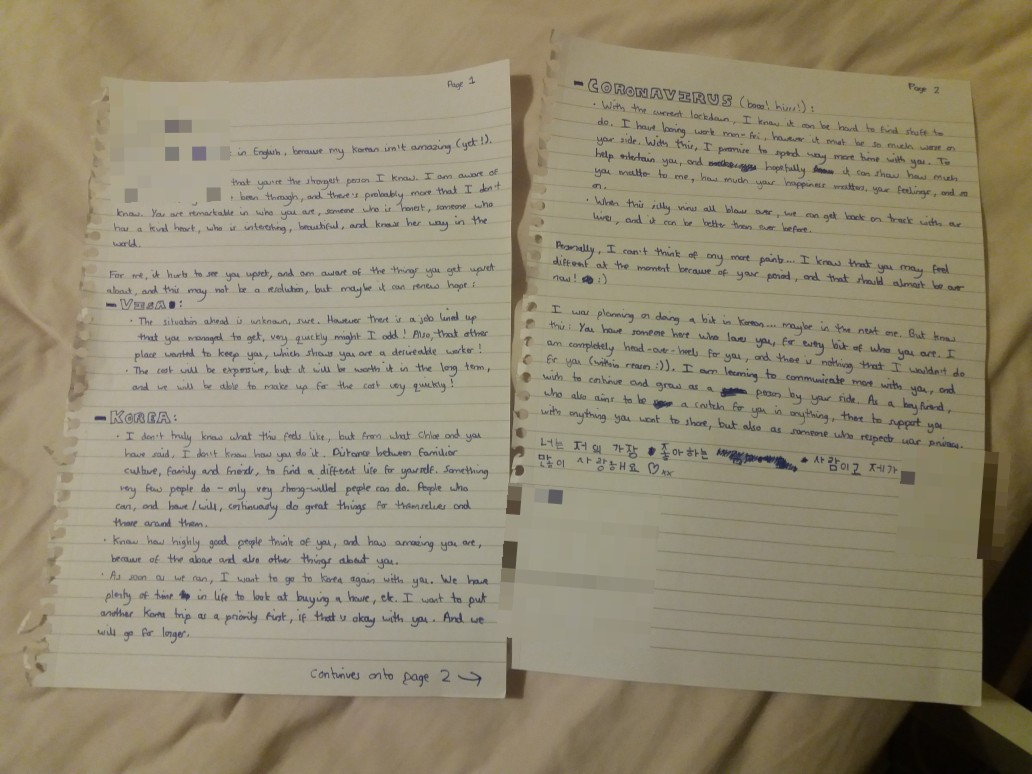 Page 1
in English, because my Korean isn't amazing (yet!).
that you're the strongest person I know. I am aware of
been through, and there's probably more that I don't
know. You are remarkable in who you are, someone who is honest, someone who
has a kind heart, who is interesting, beautiful, and knows her way in the
world.
For me, it hurts to see you upset, and am aware of the things you get upset
about, and this may not be a resolution, but maybe it can renew hope:
- VISA:
· The situation ahead is unknown, sure. However there is a job lined up
that you managed to get, very quickly might I add! Also, that other
place wanted to keep you, which shows you are a desireable worker!
· The cost will be expensive, but it will be worth it in the long term,
and we will be able to make up for the cost very quickly!
- KOREA:
· I don't truly know what this feels like, but from what Chloe and you
have said, I don't know how you do it. Distance between familiar
culture, family and friends, to find a different life for yourself. Something
very few people do - only very strong-willed people can do. People who
can, and have/will, continuously do great things for themselves and
those around them.
· Know how highly good people think of you, and how amazing you are,
because of the above and also other things about you.
· As soon as we can, I want to go to Korea again with you. We have
plenty of time in life to look at buying a house, etc. I want to put
another Korea trip as a priority first, if that's okay with you. And we
will go for longer.
Continues onto page 2 →
Page 2
- CORONAVIRUS (booo! hiss!):
· With the current lockdown, I know it can be hard to find stuff to
do. I have boring work mon-fri, however it must be so much worse on
your side. With this, I promise to spend way more time with you. To
help entertain you, and hopefully it can show how much
you matter to me, how much your happiness matters, your feelings, and so
on.
· When this silly virus all blows over, we can get back on track with our
lives, and it can be better than ever before.
Personally, I can't think of any more points... I know that you may feel
different at the moment because of your period, and that should almost be over
now! :)
I was planning on doing a bit in Korean... maybe in the next one. But know
this: You have someone here who loves you, for every bit of who you are. I
am completely head-over-heels for you, and there is nothing that I wouldn't do
for you (within reason :)). I am learning to communicate more with you, and
wish to continue and grow as a person by your side. As a boyfriend,
who also aims to be a crutch for you in anything, there to support you
with anything you want to share, but also as someone who respects your privacy.
너는 저의 가장 좋아하는 사람이고 제가
많이 사랑해요 ♡xx